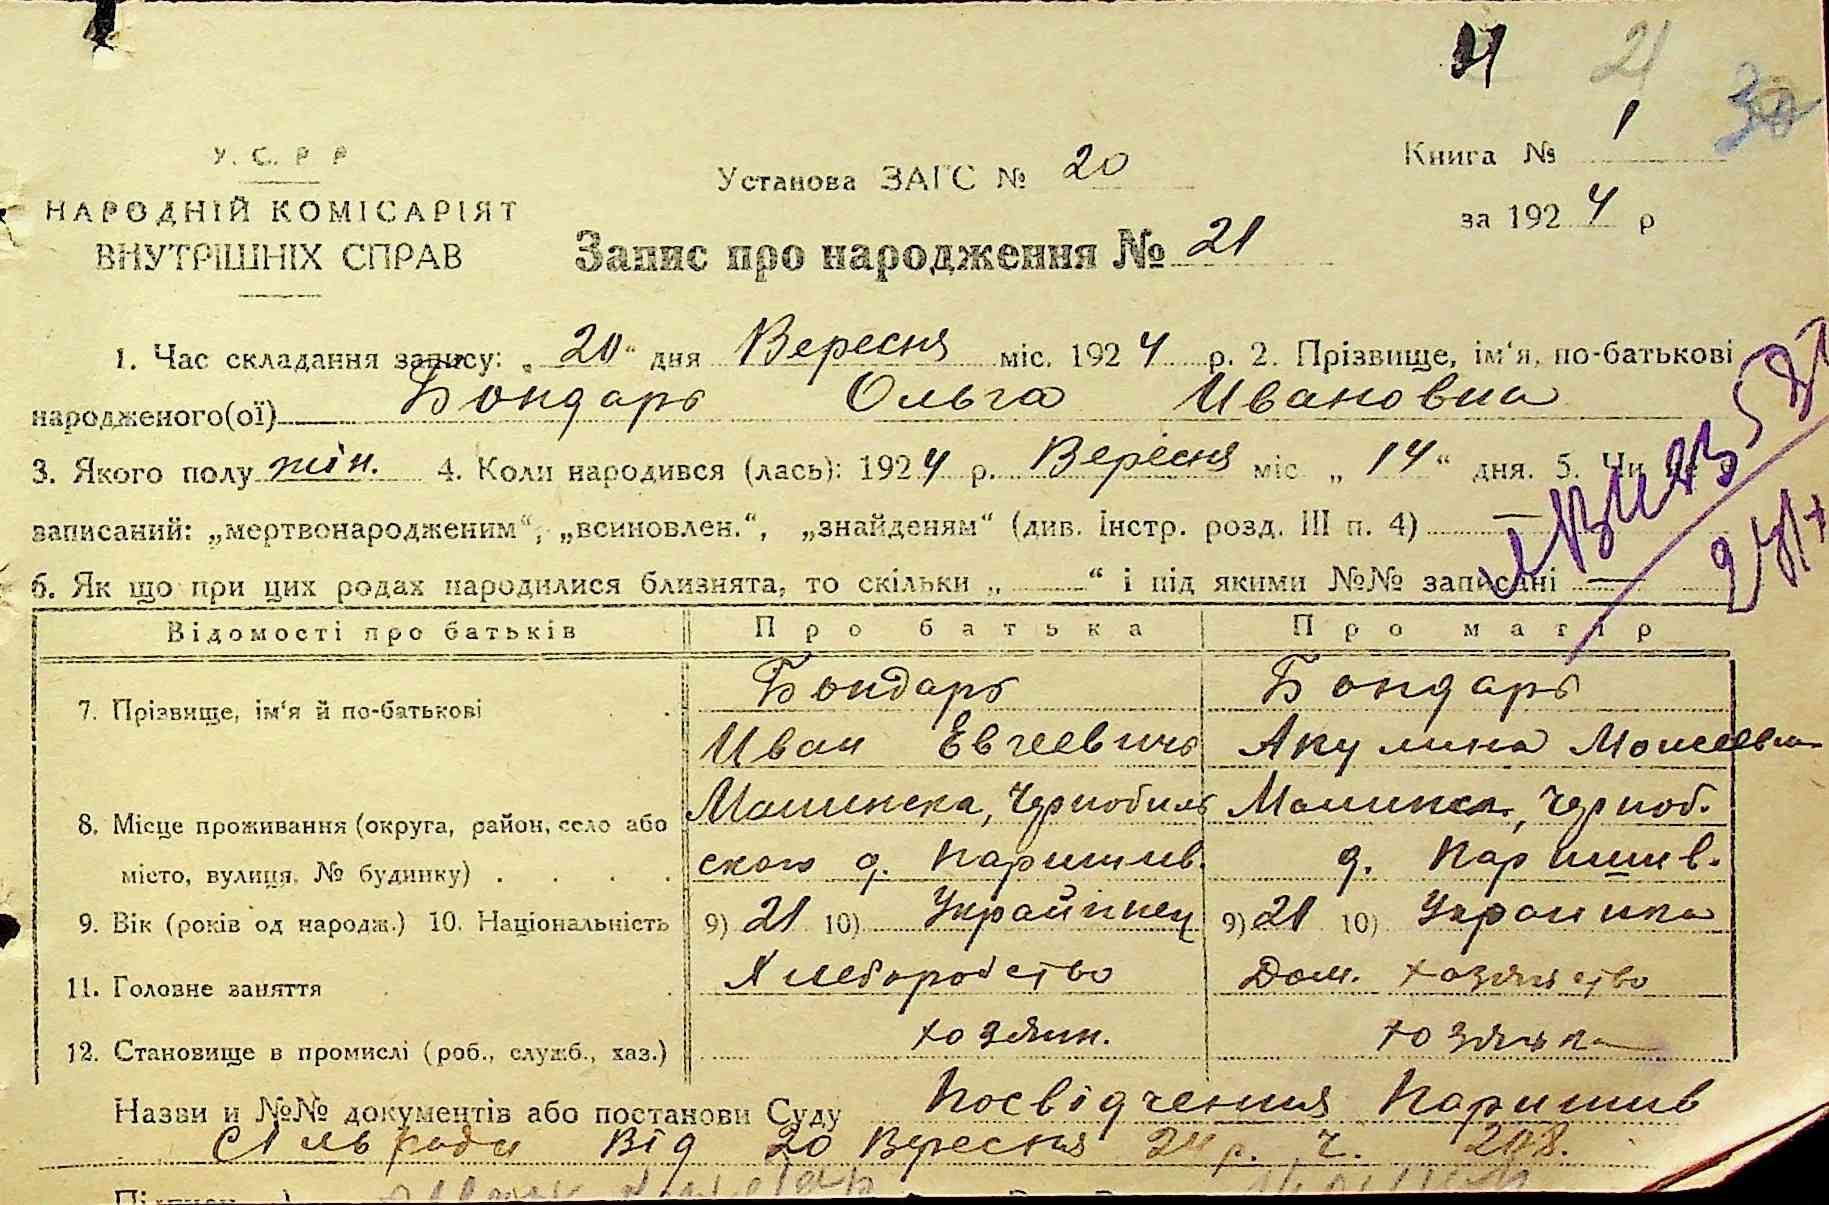 21
30
У. С. Р Р
Установа ЗАГС № 20
Книга № 1
НАРОДНІЙ КОМІСАРІЯТ
ВНУТРІШНІХ СПРАВ
за 1924 р
Запис про народження № 21
1. Час складання запису: „ 20 “ дня Вересня міс. 1924 р. 2. Прізвище, ім‘я, по-батькові
народженого(ої) Бондарь Ольга Ивановна
3. Якого полу жін. 4. Коли народився (лась): 1924 р. Вересня міс „ 14 “ дня. 5. Чи не
записаний: „мертвонародженим“, „всиновлен.“, „знайденям“ (див. Інстр. розд. III п. 4) —
6. Як що при цих родах народилися близнята, то скільки „ “ і під якими №№ записані —
Відомості про батьків Про батька Про матір
7. Прізвище, ім‘я й по-батькові Бондарь Бондарь
Иван Евгеевичь Акулина Моисеевна
8. Місце проживання (округа, район, село або Чернобиль Черноб.
місто, вулиця, № будинку) ского д. Паришив. д. Паришив.
9. Вік (років од народж.) 10. Національність 9) 21 10) Украйинец 9) 21 10) Украинка
11. Головне заняття Хлеборобство Дом. хозяйство
12. Становище в промислі (роб., служб., хаз.) хозяин. хозяйка
Назви и №№ документів або постанови Суду Посвідчення Паришив
Сільради Від 20 Вересня 24 р. Ч. 208.